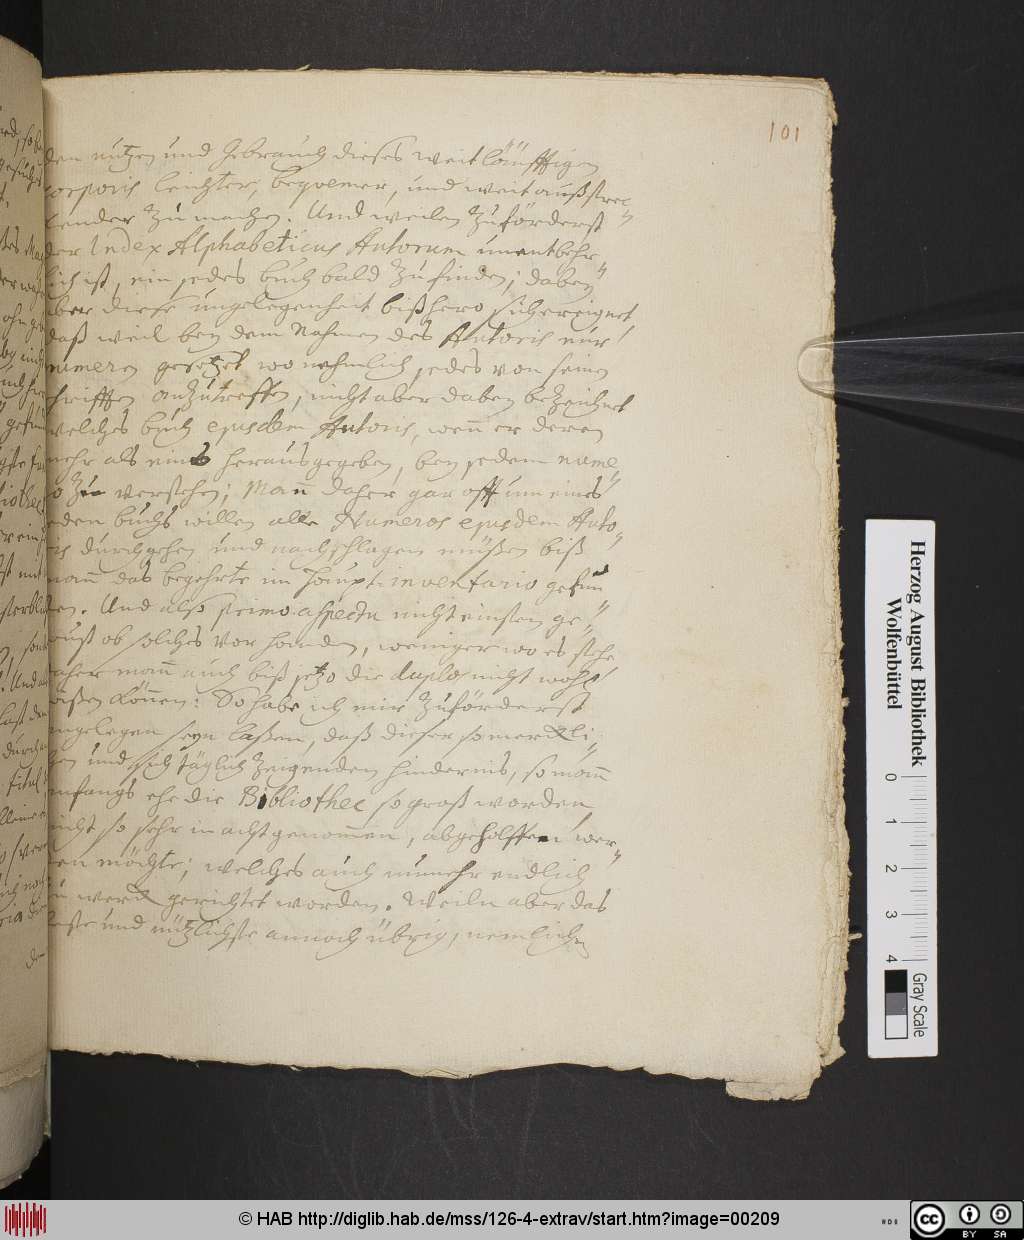 101
den nutzen und Gebrauch dieses weitläüfftigen
corporis leichter, beqvemer, und weit außstrec-
kender zu machen. Und weilen zuförderst
der Index Alphabeticus Autorum unentbehr-
lich ist, ein jedes buch bald zu finden; dabey
aber diese ungelegenheit bißhero sich ereignet
daß weil bey dem Nahmen des Autoris nur
numeren gesetzet wo nehmlich jedes von seinen
schrifften anzutreffen, nicht aber dabey bezeichnet
welches buch ejusdem Autoris, wenn er deren
mehr als eines herausgegeben, bey jedem nume-
ro zu verstehen; Mann daher gar offt um eines
jeden buchs willen alle Numeros ejusdem Auto-
ris durchgehen und nachschlagen müßen biß
mann das begehrte im Haupt-inventario gefun-
den. Und also primo aspectu nicht einsten ge-
wust ob solches vorhanden, weniger wo es stehe
daher mann auch biß jetzo die duplos nicht wohl
wißen können: So habe ich mir zuförderst
angelegen seyn laßen, daß dieser so merckli-
chen und sich täglich zeigenden hindernis, so mann
anfangs ehe die Bibliothec so groß worden
nicht so sehr in acht genommen, abgeholffen wer-
den möchte; welches auch nunmehr endlich
zu werck gerichtet worden. Weiln aber das
beste und nützlichste annoch übrig, nemlich
Herzog August Bibliothek
Wolfenbüttel
0 1 2 3 4
Gray Scale
© HAB http://diglib.hab.de/mss/126-4-extrav/start.htm?image=00209
cc BY SA